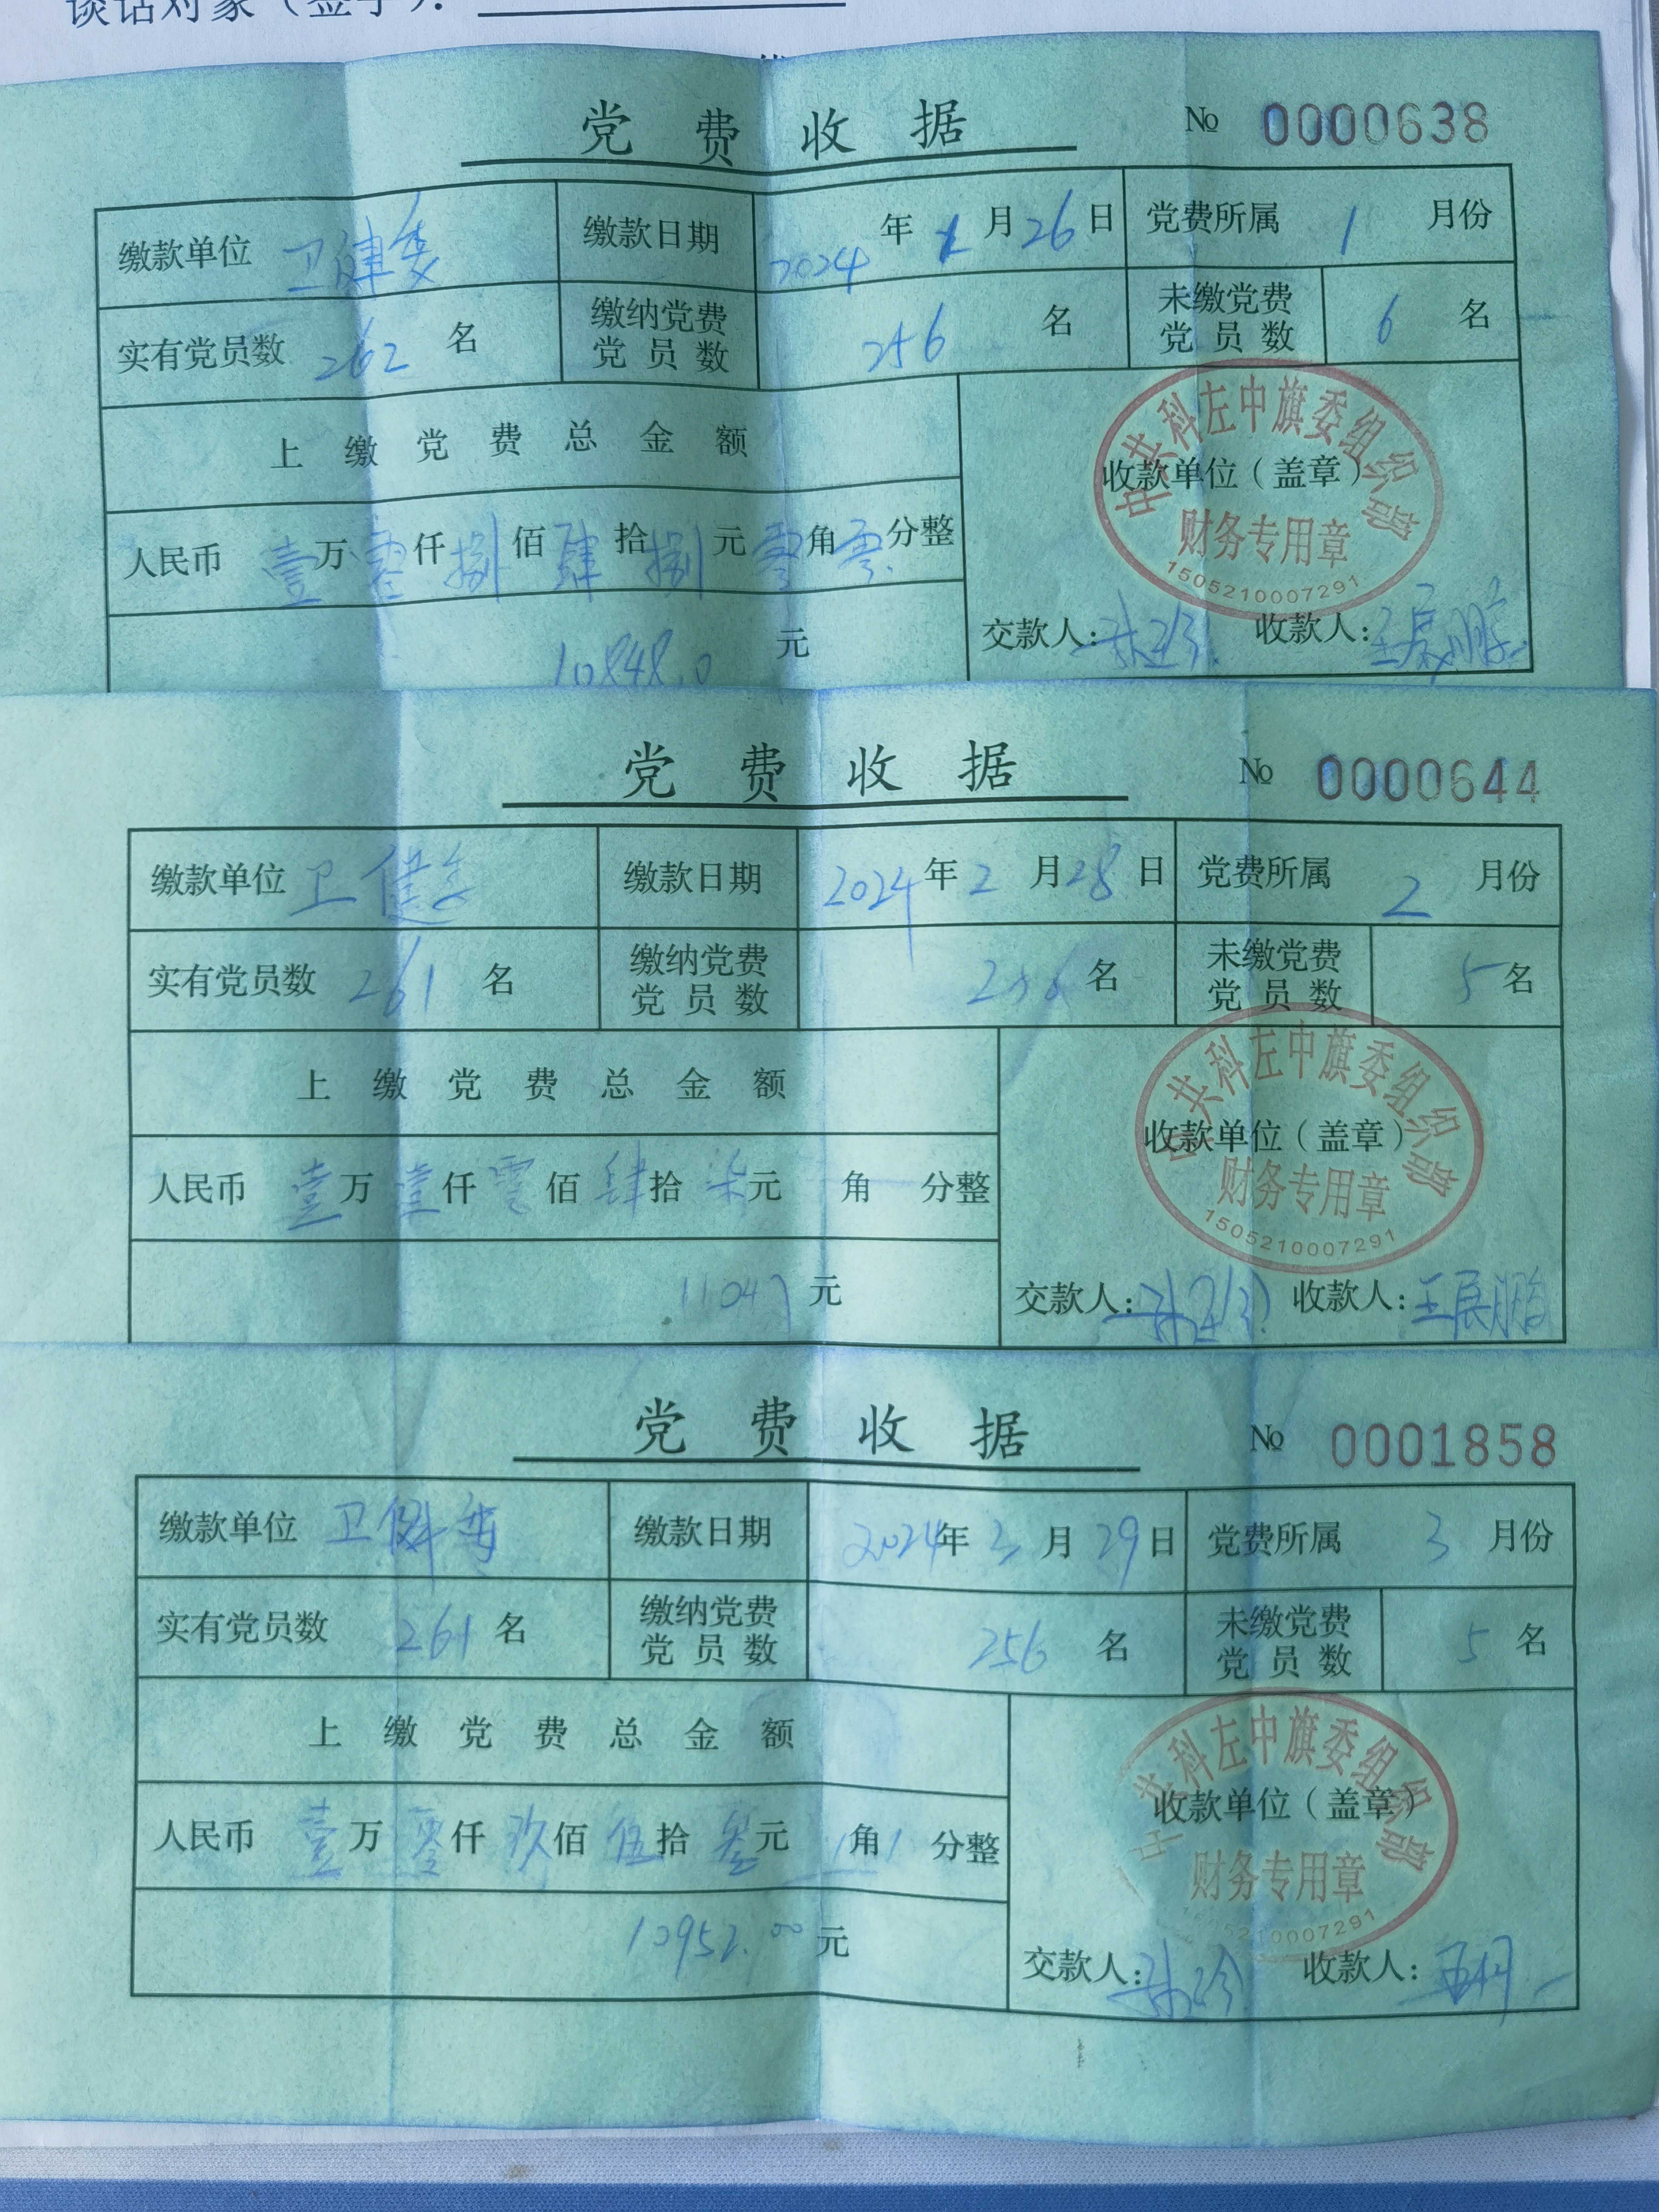 谈话对象（签字）：
党费收据 № 0000638
缴款单位 卫健委 缴款日期 2024年1月26日 党费所属 1 月份
实有党员数 262 名 缴纳党费党员数 256 名 未缴党费党员数 6 名
上缴党费总金额
人民币 壹万零仟捌佰肆拾捌元零角零分整
10848.0 元
收款单位（盖章）
中共科左中旗委组织部
财务专用章
1505210007291
交款人： 收款人：王展鹏
党费收据 № 0000644
缴款单位 卫健委 缴款日期 2024年2月28日 党费所属 2 月份
实有党员数 261 名 缴纳党费党员数 256 名 未缴党费党员数 5 名
上缴党费总金额
人民币 壹万壹仟零佰肆拾柒元 角 分整
11047 元
收款单位（盖章）
中共科左中旗委组织部
财务专用章
1505210007291
交款人： 收款人：王展鹏
党费收据 № 0001858
缴款单位 卫健委 缴款日期 2024年3月29日 党费所属 3 月份
实有党员数 261 名 缴纳党费党员数 256 名 未缴党费党员数 5 名
上缴党费总金额
人民币 壹万零仟玖佰伍拾叁元 角 分整
元
收款单位（盖章）
中共科左中旗委组织部
财务专用章
1505210007291
交款人： 收款人：